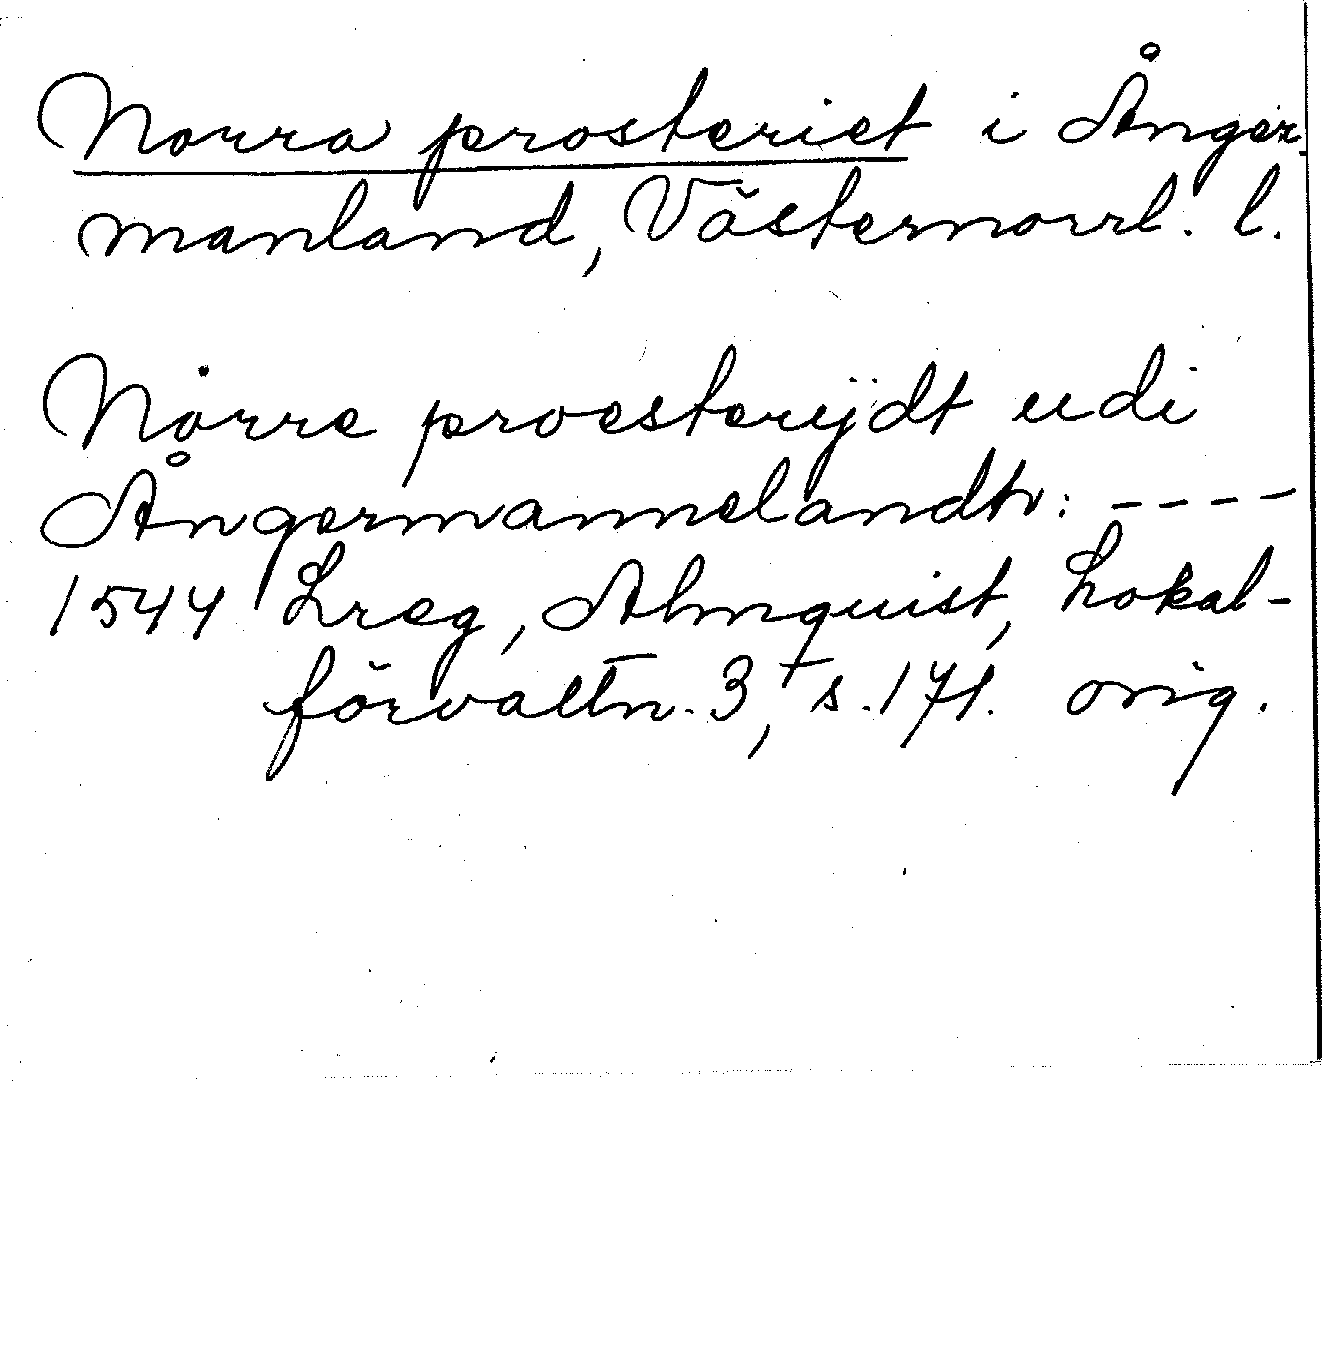 Norra prosteriet i Ånger-
manland, Västernorrl. l.
Nörre proesterijdt udi
Ångermannelandh: ----
1544 Lreg, Almquist, Lokal-
förvaltn. 3, s. 171. orig.